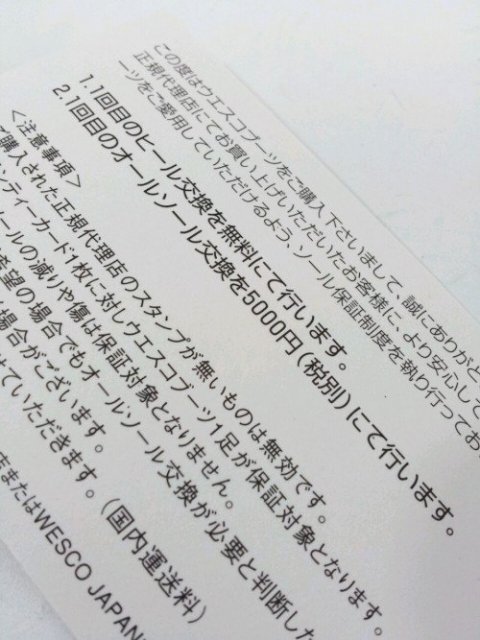 この度はウエスコブーツをご購入下さいまして、誠にありがと
正規代理店にてお買い上げいただいたお客様に、より安心して
ーツをご愛用していただけるよう、ソール保証制度を執り行ってお
1.1回目のヒール交換を無料にて行います。
2.1回目のオールソール交換を5000円(税別)にて行います。
<注意事項>
ご購入された正規代理店のスタンプが無いものは無効です。
ンティーカード1枚に対しウエスコブーツ1足が保証対象となります。
ソールの減りや傷は保証対象となりません。
希望の場合でもオールソール交換が必要と判断した
場合がございます。
せていただきます。(国内運送料)
店またはWESCO JAPAN